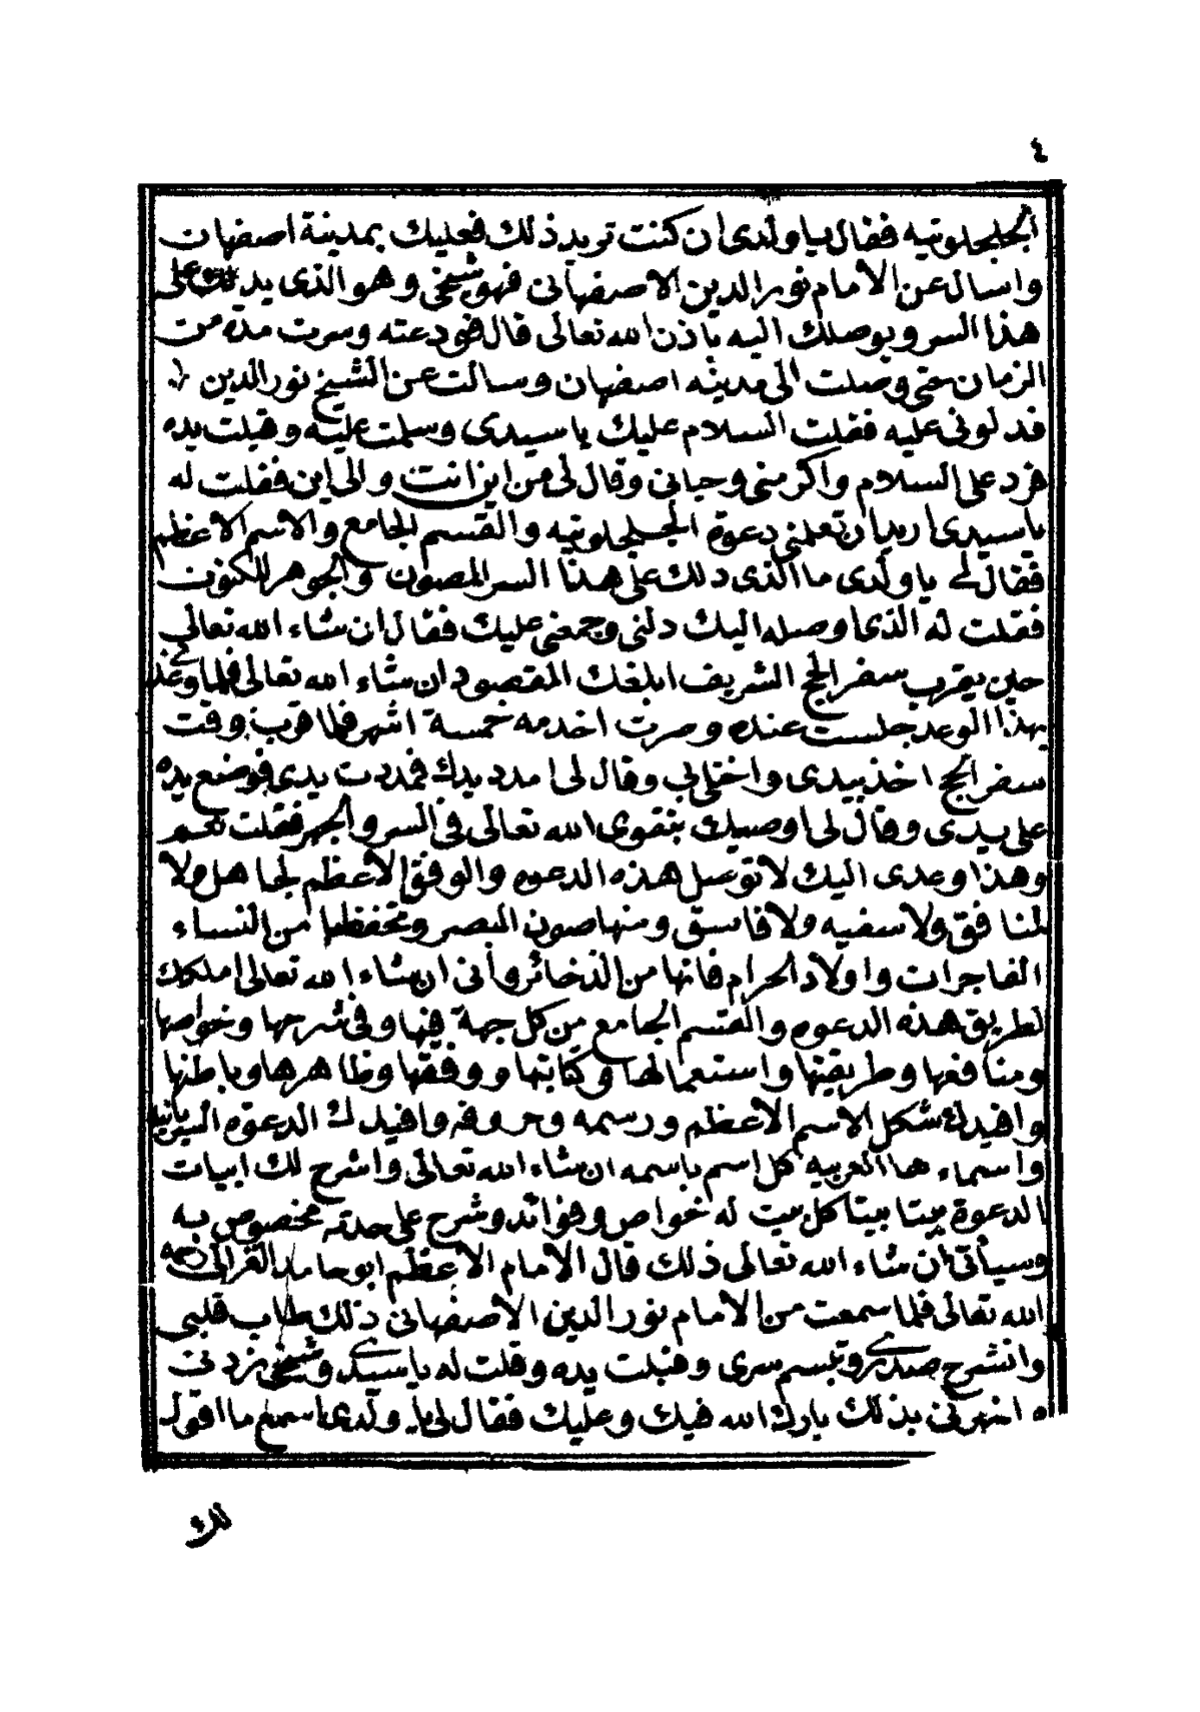 ٤
الجلجلوتيه فقال يا ولدى ان كنت تريد ذلك فعليك بمدينة اصفهان
واسال عن الامام نور الدين الاصفهانى فهو شيخى وهو الذى يدلك على
هذا السر ويوصلك اليه باذن الله تعالى قال فودعته وسرت مده من
الزمان حتى وصلت الى مدينه اصفهان وسالت عن الشيخ نور الدين
فدلونى عليه فقلت السلام عليك يا سيدى وسلمت عليه وقبلت يده
فرد على السلام واكرمنى وحيانى وقال لى من اين انت والى اين فقلت له
يا سيدى اريد ان تعلمنى دعوة الجلجلوتيه والقسم الجامع والاسم الاعظم
فقال لى يا ولدى ما الذى دلك على هذا السر المصون والجوهر المكنون
فقلت له الذى اوصله اليك دلنى وجمعنى عليك فقال ان شاء الله تعالى
حين يقرب سفر الحج الشريف ابلغك المقصود ان شاء الله تعالى فلما وعدنى
بهذا الوعد جلست عنده وصرت اخدمه خمسة اشهر فلما قرب وقت
سفر الحج اخذ بيدى واختلى بى وقال لى امدد يدك فمددت يدى فوضع يده
على يدى وقال لى اوصيك بتقوى الله تعالى فى السر والجهر فقلت نعم
وهذا وعدى اليك لا توصل هذه الدعوه والوفق الاعظم لجاهل ولا
لمنافق ولا سفيه ولا فاسق ومنها صون البصر وتحفظها من النساء
الفاجرات واولاد الحرام فانها من الذخائر وأنى ان شاء الله تعالى املكك
لطريق هذه الدعوه والقسم الجامع من كل جهة فيها وفى شرحها وخواصها
ومنافعها وطريقتها واستعمالها وكتابتها ووفقها وظاهرها وباطنها
وافيدك شكل الاسم الاعظم ورسمه وحروفه وافيدلك الدعوه السريانيه
واسماءها العربيه كل اسم باسمه ان شاء الله تعالى واشرح لك ابيات
الدعوة بيتا بيتا كل بيت له خواص وفوائد وشرح على حدته مخصوص به
وسيأتى ان شاء الله تعالى ذلك قال الامام الاعظم ابو حامد الغزالى رحمه
الله تعالى فلما سمعت من الامام نور الدين الاصفهانى ذلك طاب قلبى
وانشرح صدرى وتبسم سرى وقبلت يده وقلت له يا سيدى وشيخى زدنى
بذلك بارك الله فيك وعليك فقال لى يا ولدى اسمع ما اقول
لك